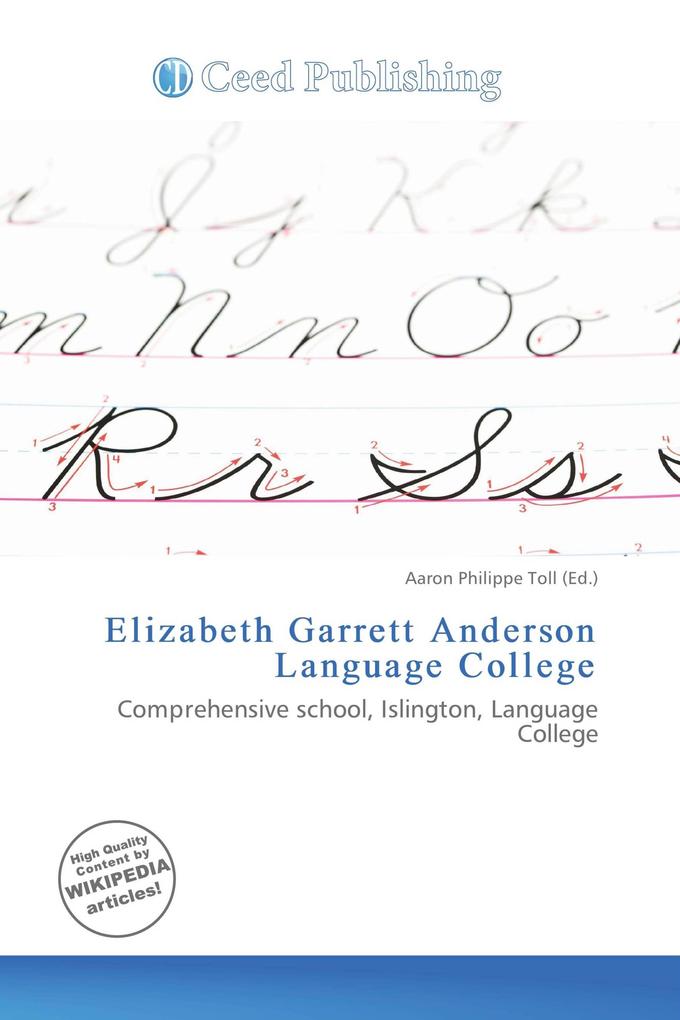 CD Ceed Publishing
J j K k
m N n O o
R r S s
Aaron Philippe Toll (Ed.)
Elizabeth Garrett Anderson
Language College
Comprehensive school, Islington, Language
College
High Quality
Content by
WIKIPEDIA
articles!